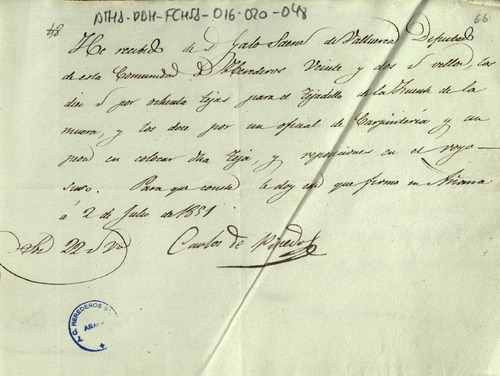 48
ATHA-DAH-FCHSA-016-020-048
66
He recibido de D. Galo Saenz de Valluerca Diputado
de esta Comunidad de Herederos Veinte y dos r.s vellon, los
diez r.s por ochenta tejas para el tejadillo de la Fuente de la
muera, y los doce por un oficial de Carpintería y un
peon en colocar dha teja, y reposiciones en el royo
suso. Para que conste le doy este que firmo en Añana
á 2 de Julio de 1851
Son 22 r.s Von
Carlos de Pinedo
A. G. HEREDEROS
ARA